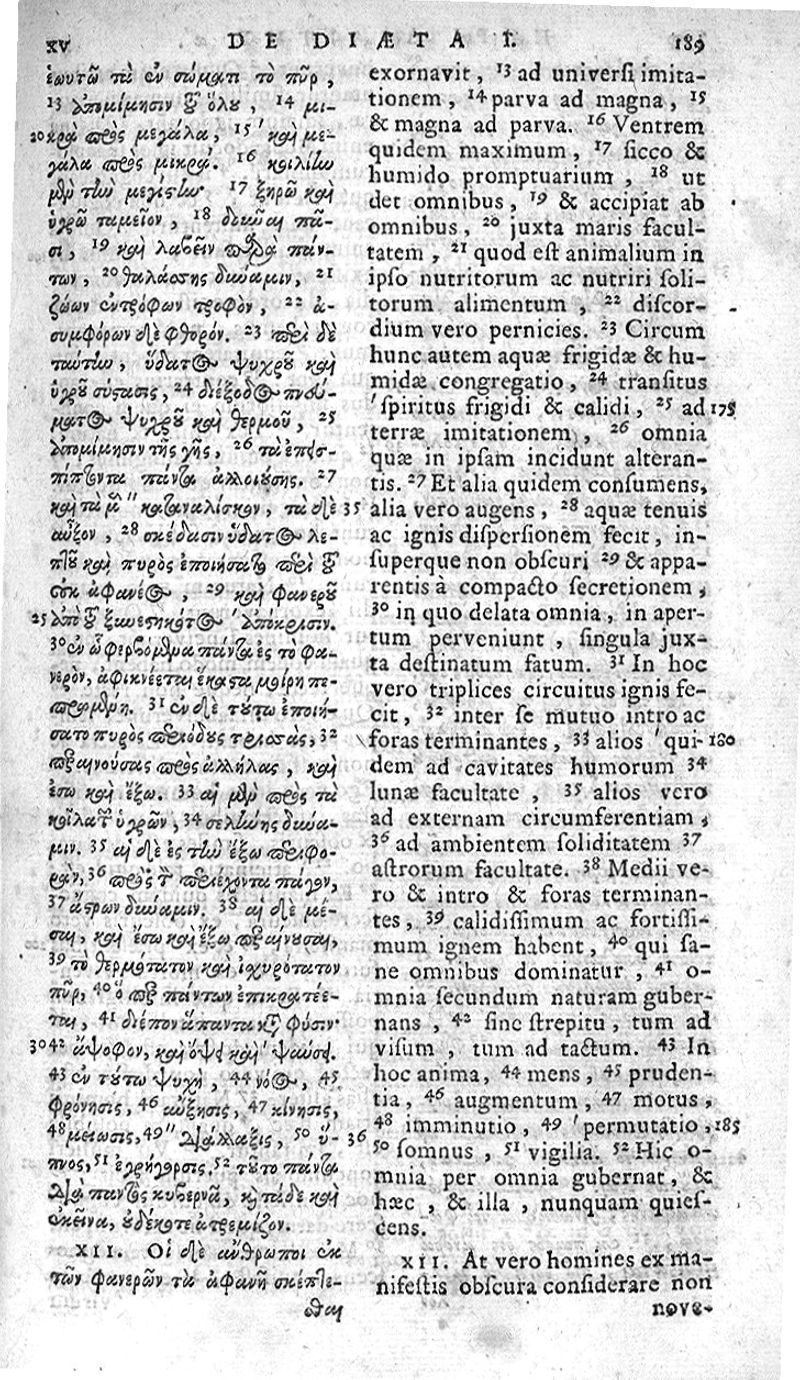 XV DE DIÆTA I. 189
ἑωυτῶ τὰ ἐν σώματι τὸ πῦρ,
13 ἀπομίμησιν τοῦ ὅλου, 14 μι-
20 κρὰ πρὸς μεγάλα, 15 ʹκαὶ με-
γάλα πρὸς μικρά. 16 κοιλίην
μὲν τὴν μεγίστην· 17 ξηρῶ καὶ
ὑγρῶ ταμεῖον, 18 δοῦναι πᾶ-
σι, 19 καὶ λαβεῖν παρὰ πάν-
των, 20 θαλάσσης δύναμιν, 21
ζώων ἐντρόφων τροφὸν, 22 ἀ-
συμφόρων δὲ φθορόν. 23 περὶ δὲ
ταύτην, ὕδατος ψυχροῦ καὶ
ὑγροῦ σύστασις, 24 διέξοδος πνεύ-
ματος ψυχροῦ καὶ θερμοῦ, 25
ἀπομίμησιν τῆς γῆς, 26 τὰ ἐπεισ-
πίπτοντα πάντα ἀλλοιούσης. 27
καὶ τὰ μὲν ʺκαταναλίσκον, τὰ δὲ 35
αὖξον, 28 σκέδασιν ὕδατος λε-
πτοῦ καὶ πυρὸς ἐποιήσατο περὶ τοῦ
οὐκ ἀφανέος, 29 καὶ φανεροῦ
25 ἀπὸ τοῦ ξυνεστηκότος ʹἀπόκρισιν.
30 ἐν ᾧ φερόμενα πάντα ἐς τὸ φα-
νερὸν, ἀφικνέεται ἕκαστα μοίρη πε-
πρωμένῃ. 31 ἐν δὲ τούτῳ ἐποιή-
σατο πυρὸς περιόδους τρισσὰς, 32
περαινούσας πρὸς ἀλλήλας, καὶ
ἔσω καὶ ἔξω. 33 αἱ μὲν πρὸς τὰ
κοῖλα τῶν ὑγρῶν, 34 σελήνης δύνα-
μιν. 35 αἱ δὲ ἐς τὴν ἔξω περιφο-
ρὰν, 36 πρὸς τὸν περιέχοντα πάγον,
37 ἄστρων δύναμιν. 38 αἱ δὲ μέ-
σαι, καὶ ἔσω καὶ ἔξω περαίνουσαι,
39 τὸ θερμότατον καὶ ἰσχυρότατον
πῦρ, 40 ὅπερ πάντων ἐπικρατέε-
ται, 41 διέπον ἅπαντα κατὰ φύσιν·
30 42 ἄψοφον, καὶ ὄψει καὶ ʹψαύσει.
43 ἐν τούτῳ ψυχὴ, 44 νόος, 45
φρόνησις, 46 αὔξησις, 47 κίνησις,
48 μείωσις, 49 ʺδιάλλαξις, 50 ὕ- 36
πνος, 51 ἐγρήγορσις, 52 τοῦτο πάντα
διὰ παντὸς κυβερνᾷ, καὶ τάδε καὶ
ἐκεῖνα, οὐδέκοτε ἀτρεμίζον.
XII. Οἱ δὲ ἄνθρωποι ἐκ
τῶν φανερῶν τὰ ἀφανῆ σκέπτε-
σθαι
exornavit, 13 ad universi imita-
tionem, 14 parva ad magna, 15
& magna ad parva. 16 Ventrem
quidem maximum, 17 sicco &
humido promptuarium, 18 ut
det omnibus, 19 & accipiat ab
omnibus, 20 juxta maris facul-
tatem, 21 quod est animalium in
ipso nutritorum ac nutriri soli-
torum alimentum, 22 discor-
dium vero pernicies. 23 Circum
hunc autem aquæ frigidæ & hu-
midæ congregatio, 24 transitus
ʹspiritus frigidi & calidi, 25 ad 175
terræ imitationem, 26 omnia
quæ in ipsam incidunt alteran-
tis. 27 Et alia quidem consumens,
alia vero augens, 28 aquæ tenuis
ac ignis dispersionem fecit, in-
superque non obscuri 29 & appa-
rentis à compacto secretionem,
30 in quo delata omnia, in aper-
tum perveniunt, singula jux-
ta destinatum fatum. 31 In hoc
vero triplices circuitus ignis fe-
cit, 32 inter se mutuo intro ac
foras terminantes, 33 alios ʹqui- 180
dem ad cavitates humorum 34
lunæ facultate, 35 alios vero
ad externam circumferentiam,
36 ad ambientem soliditatem 37
astrorum facultate. 38 Medii ve-
ro & intro & foras terminan-
tes, 39 calidissimum ac fortissi-
mum ignem habent, 40 qui sa-
ne omnibus dominatur, 41 o-
mnia secundum naturam guber-
nans, 42 sine strepitu, tum ad
visum, tum ad tactum. 43 In
hoc anima, 44 mens, 45 pruden-
tia, 46 augmentum, 47 motus,
48 imminutio, 49 ʹpermutatio, 185
50 somnus, 51 vigilia. 52 Hic o-
mnia per omnia gubernat, &
hæc, & illa, nunquam quies-
cens.
XII. At vero homines ex ma-
nifestis obscura considerare non
nove-